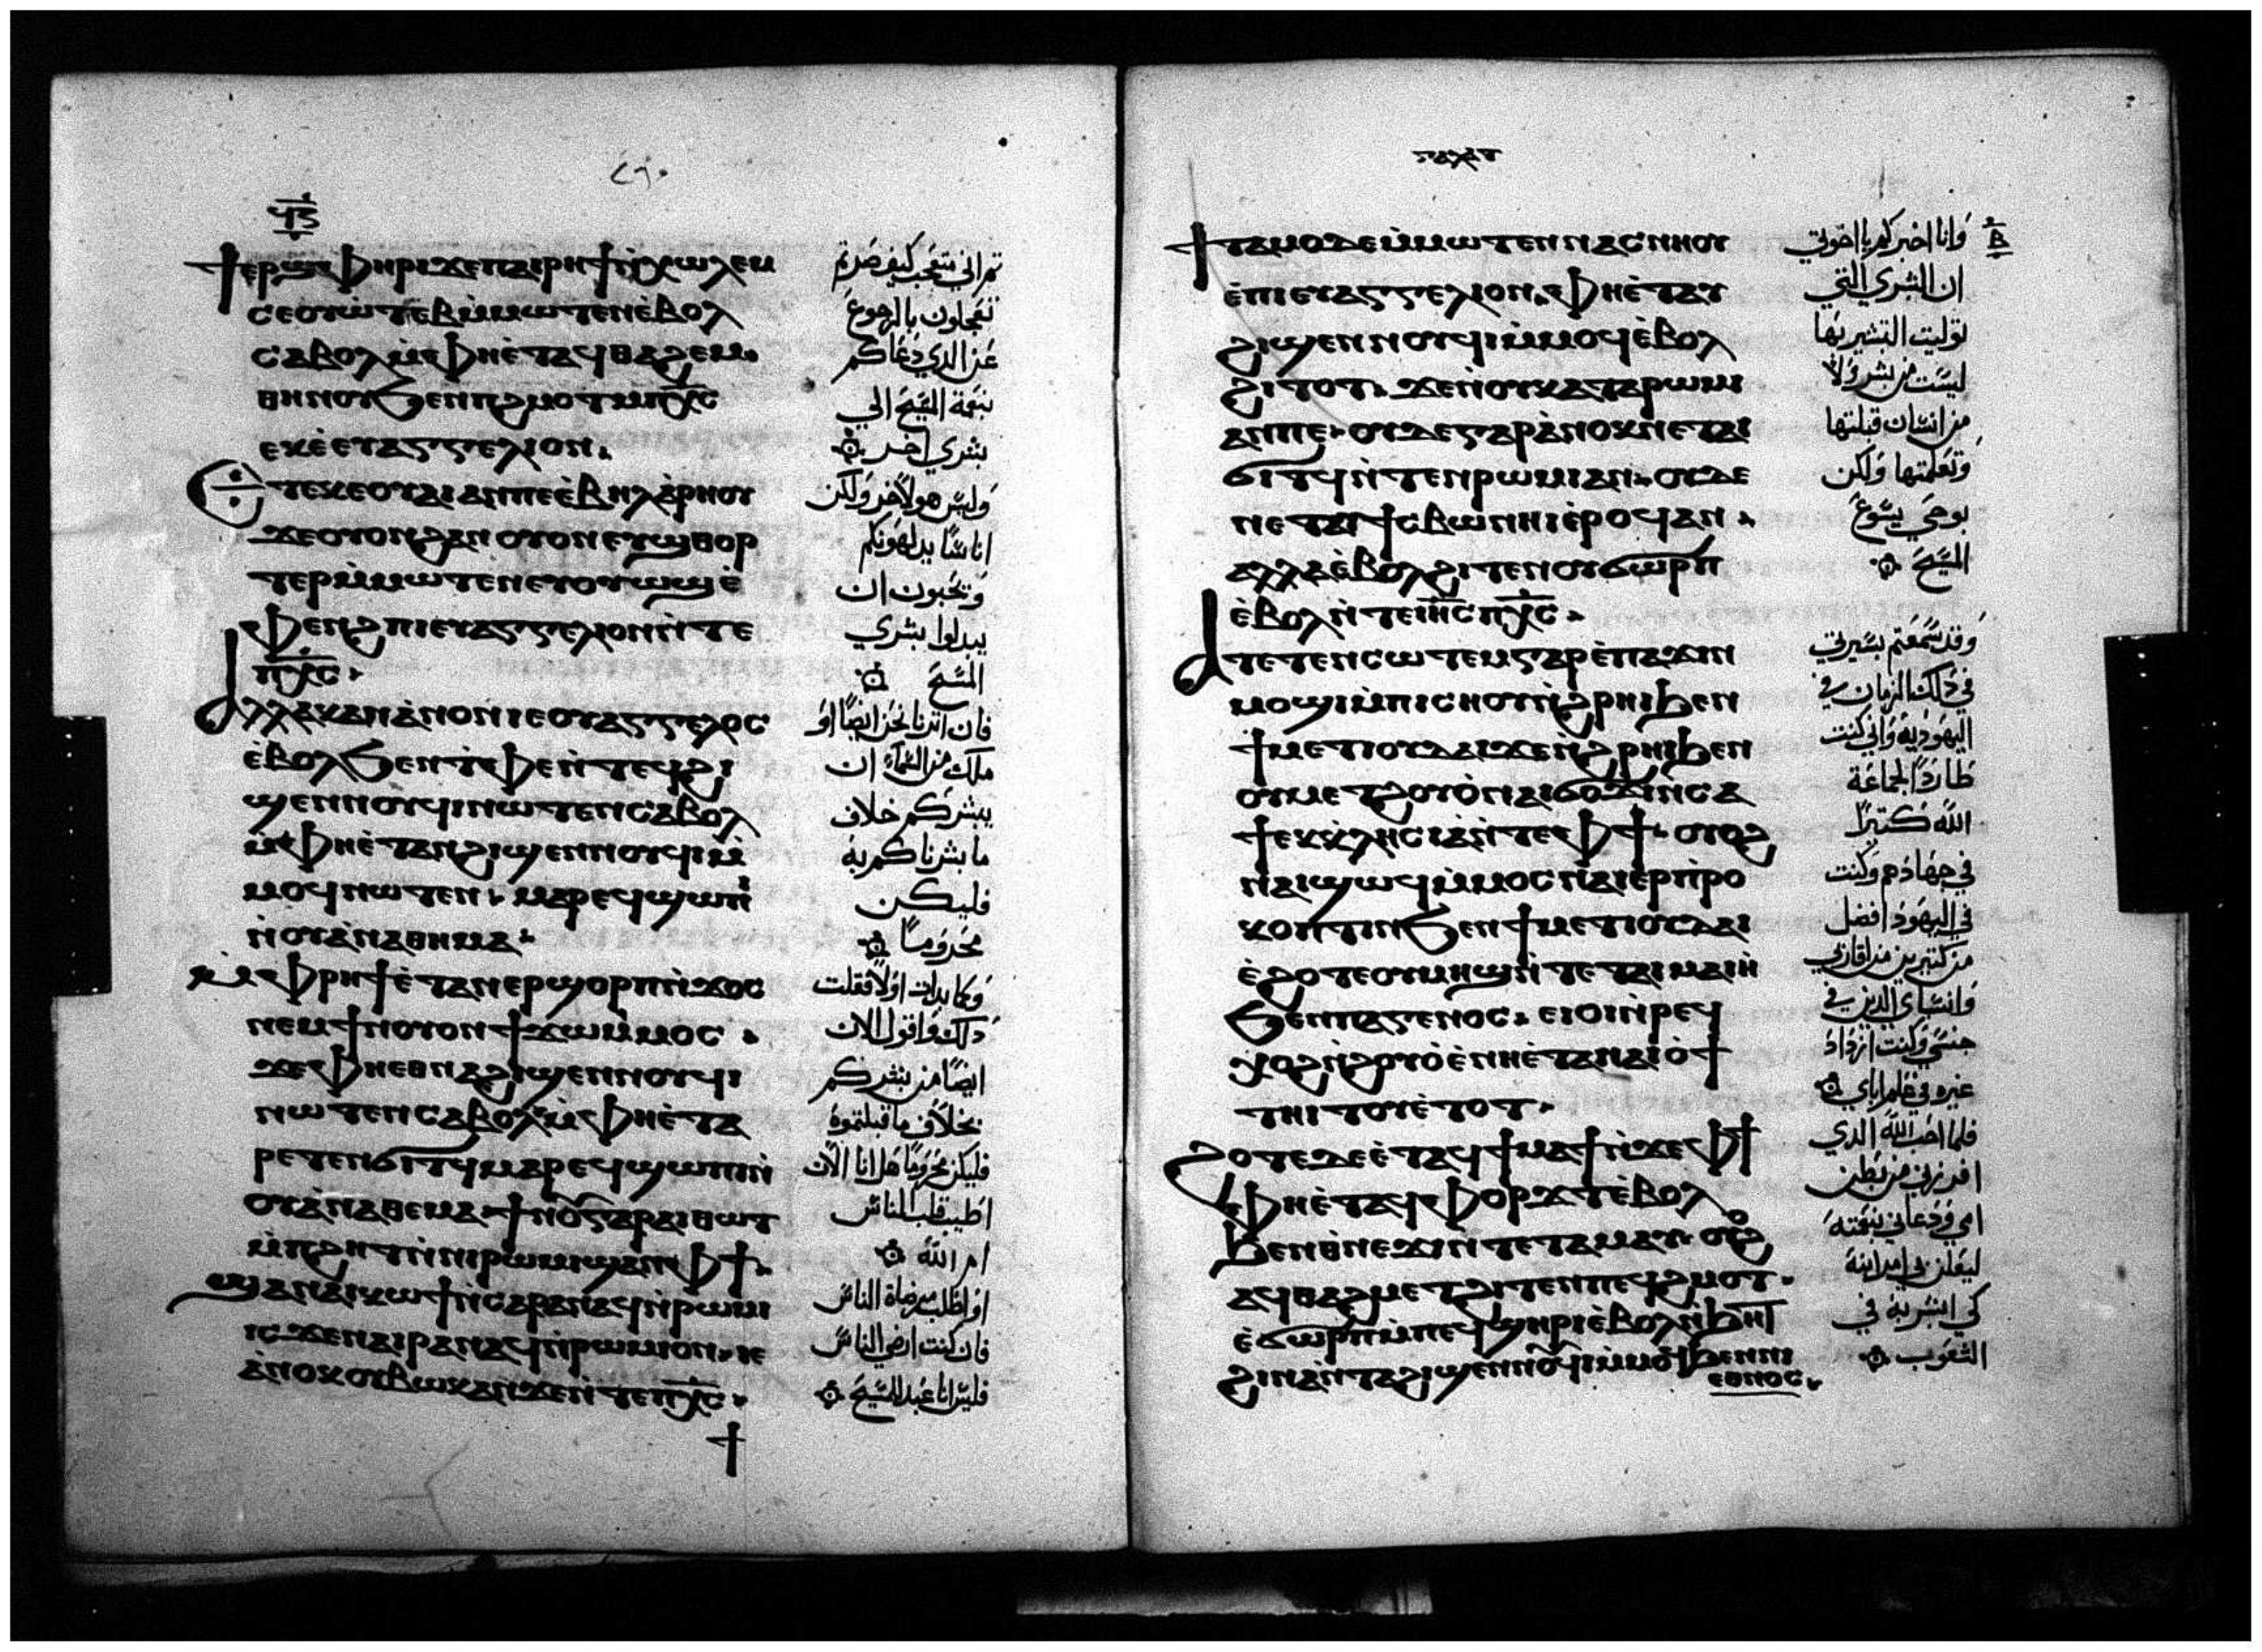 ϥ̅ⲋ̅
ϯⲉⲣϣⲫⲏⲣⲓϫⲉⲡⲁⲓⲣⲏϯⲛ̀ⲭⲱⲗⲉⲙ
ⲥⲉⲟⲩⲱ̀ⲧⲉⲃⲙ̀ⲙⲱⲧⲉⲛⲉ̀ⲃⲟⲗ
ⲥⲁⲃⲟⲗⲙ̀ⲫⲏⲉ̀ⲧⲁϥⲑⲁϩⲉⲙ
ⲑⲏⲛⲟⲩϧⲉⲛⲡϩⲙⲟⲧⲙⲡⲭ̅ⲥ̅
ⲉⲕⲉ̀ⲉⲩⲁⲅⲅⲉⲗⲓⲟⲛ.
Ⲉⲧⲉⲕⲉⲟⲩⲁⲓⲁⲛⲡⲉⲉ̀ⲃⲏⲗⲁ̀ⲣⲏⲟⲩ
ϫⲉⲟⲩⲟⲛϩⲁⲛⲟⲩⲟⲛⲉⲩϣⲑⲟⲣ
ⲧⲉⲣⲙ̀ⲙⲱⲧⲉ̀ⲛⲉⲩⲟⲩⲱϣⲉ̀
ⲫⲉⲛϩⲡⲓⲉⲩⲁⲅⲅⲉⲗⲓⲟⲛⲛ̀ⲧⲉ
ⲡⲭ̅ⲥ̅.
Ⲁⲗⲗⲁⲕⲁⲛⲁ̀ⲛⲟⲛⲓⲉⲟⲩⲁⲅⲅⲉⲗⲟⲥ
ⲉ̀ⲃⲟⲗϧⲉⲛⲧ̀ⲫⲉⲛ̀ⲧⲉϥϩⲓ
ϣⲉⲛⲛⲟⲩϥⲓⲛⲱⲧⲉⲛⲥⲁⲃⲟⲗ
ⲙ̀ⲫⲏⲉ̀ⲧⲁⲛϩⲓϣⲉⲛⲛⲟⲩϥⲓⲙ̀
ⲙⲟϥⲛⲱⲧⲉⲛ. ⲙⲁⲣⲉϥϣⲱⲡⲓ
ⲛ̀ⲟⲩⲁ̀ⲛⲁⲑⲏⲙⲁ.
Ⲙ̀ⲫⲣⲏϯⲉ̀ⲧⲁⲛⲉⲣϣⲟⲣⲡⲛ̀ϫⲟⲥ
ⲛⲉⲙϯⲛⲟⲩⲟⲛϯϫⲱⲙ̀ⲙⲟⲥ.
ϫⲉⲫⲏⲉⲑⲛⲁϩⲓϣⲉⲛⲛⲟⲩϥⲓ
ⲛⲱⲧⲉⲛⲥⲁⲃⲟⲗⲙ̀ⲫⲏⲉ̀ⲧⲁ
ⲣⲉⲧⲉⲛϭⲓⲧϥⲙⲁⲣⲉϥϣⲱⲡⲓⲛ̀
ⲟⲩⲁ̀ⲛⲁⲑⲉⲙⲁϯⲛⲟⲩⲅⲁⲣⲁⲓⲑⲱⲧ
ⲙ̀ⲡϩⲏⲧⲛ̀ⲛⲓⲣⲱⲙⲓϣⲁⲛⲫϯ.
Ϣⲁⲛⲁⲓⲕⲱϯⲛ̀ⲥⲁⲣⲁⲛⲁϥⲛ̀ⲣⲱⲙⲓ
ⲓⲥϫⲉⲛⲁⲓⲣⲁⲛⲁϥⲛ̀ⲣⲱⲙⲓⲟⲛ.ⲛⲉ
ⲁ̀ⲛⲟⲕⲟⲩⲃⲱⲕⲁⲛϫⲉⲛ̀ⲧⲉⲡⲭ̅ⲥ̅.
ثم اني متعجب كيف صرتم
تعجلون بالرجوع
عن الدي دعاكم
بنعمة المسيح الي
بشري اخر
وليس هو لاخر ولكن
اناسًا يدلهونكم
ويحبون ان
يبدلوا بشري
المسيح
فان اثرنا نحن ايضًا او
ملك من السماء ان
يبشركم خلاف
ما بشرناكم به
فليكن
محرومًا
وكما بدات اولًا فقلت
دلك واقول الان
ايضًا من بشركم
بخلاف ما قبلتموه
فليكن محرومًا هل انا الان
اطيب قلب الناس
ام الله
او اطلب مرضاة الناس
فان كنت ارضي الناس
فليس انا عبد المسيح
ⲃ̅
ϯⲧⲁⲙⲟⲇⲉⲙ̀ⲙⲱⲧⲉⲛⲛⲁⲥⲛⲏⲟⲩ
ⲉ̀ⲡⲓⲉⲩⲁⲅⲅⲉⲗⲓⲟⲛ.ⲫⲏⲉ̀ⲧⲁⲩ
ϩⲓϣⲉⲛⲛⲟⲩϥⲓⲙ̀ⲙⲟϥⲉ̀ⲃⲟⲗ
ϩⲓⲧⲟⲧ. ϫⲉⲛ̀ⲟⲩⲕⲁⲧⲁⲣⲱⲙⲓ
ⲁⲛⲡⲉ. ⲟⲩⲇⲉⲅⲁⲣⲁ̀ⲛⲟⲕⲛⲉⲧⲁⲓ
ϭⲓⲧϥⲛ̀ⲧⲉⲛⲣⲱⲙⲓⲁⲛ. ⲟⲩⲇⲉ
ⲛⲉⲧⲁⲩϯⲥⲃⲱⲛⲏⲓⲉ̀ⲣⲟϥⲁⲛ.
ⲁⲗⲗⲁⲉ̀ⲃⲟⲗϩⲓⲧⲉⲛⲟⲩϭⲱⲣⲡ
ⲉ̀ⲃⲟⲗⲛ̀ⲧⲉⲓⲏ̅ⲥ̅ⲡⲭ̅ⲥ̅.
Ⲁⲧⲉⲧⲉⲛⲥⲱⲧⲉⲙⲅⲁⲣⲉ̀ⲡⲁϫⲓⲛ
ⲙⲟϣⲓⲙ̀ⲡⲓⲥⲏⲟⲩⲛ̀ϩⲣⲏⲓϧⲉⲛ
ϯⲙⲉⲧⲓⲟⲩⲇⲁⲓϫⲉⲛ̀ϩⲣⲏⲓϧⲉⲛ
ⲟⲩⲙⲉⲧϩⲟⲩⲟ̀ⲛⲁⲓϭⲟϫⲓⲛ̀ⲥⲁ
ϯⲉⲕⲕⲗⲏⲥⲓⲁ̀ⲛ̀ⲧⲉⲫϯ. ⲟⲩⲟϩ
ⲛⲁⲓϣⲱϥⲙ̀ⲙⲟⲥⲛⲁⲓⲉⲣⲡ̀ⲣⲟ
ⲕⲟⲡⲧⲓⲛϧⲉⲛϯⲙⲉⲧⲓⲟⲩⲇⲁⲓ
ⲉ̀ϩⲟⲧⲉⲟⲩⲙⲏϣⲛ̀ⲧⲉⲧⲁⲓⲙⲁⲓⲏ̀
ϧⲉⲛⲡⲁⲅⲉⲛⲟⲥ. ⲉⲓⲟⲓⲛ̀ⲣⲉϥ
ⲭⲟϩⲛ̀ϩⲟⲩⲟ̀ⲉ̀ⲛⲏⲉ̀ⲧⲁⲛⲁⲓⲟ̀ϯ
ⲧⲏⲓⲧⲟⲩⲉ̀ⲧⲟⲧ.
Ϩⲟⲧⲉⲇⲉⲉ̀ⲧⲁϥϯⲙⲁϯⲛ̀ϫⲉⲫϯ
ⲫⲏⲉ̀ⲧⲁϥⲫⲟⲣϫⲧⲉ̀ⲃⲟⲗ
ϧⲉⲛⲑ̀ⲛⲉϫⲓⲛ̀ⲧⲉⲧⲁⲙⲁⲩ. ⲟⲩⲟϩ
ⲁϥⲑⲁϩⲙⲉⲧϩⲓⲧⲉⲛⲡⲉϥϩⲙⲟⲧ.
ⲉ̀ϭⲱⲣⲡⲙ̀ⲡⲉϥϣⲏⲣⲓⲉ̀ⲃⲟⲗⲛ̀ϧⲏⲧ
ϩⲓⲛⲁⲛ̀ⲧⲁϩⲓϣⲉⲛⲛⲟⲩϥⲓⲙ̀ⲙⲟϥϧⲉⲛⲛⲓ
ⲉⲑⲛⲟⲥ.
وانا اخبركم يا اخوتي
ان البشري التي
توليت التبشير بها
ليست من بشر ولا
من انسان قبلتها
وتعلمتها ولكن
بوحي يسوع
المسيح
وقد سمعتم بسيرتي
في دلك الزمان في
اليهودية واني كنت
طاردًا لجماعة
الله كتيرًا
في جهادهم وكنت
في اليهود افضل
من كتيرين من اقاربي
وانسباي الدين في
جنسي وكنت ازداد
غيره في علم اباي
فلما احب الله الدي
افرزني من بطن
امي ودعاني بنعمته
ليعلن بي امر ابنه
كي ابشر به في
الشعوب